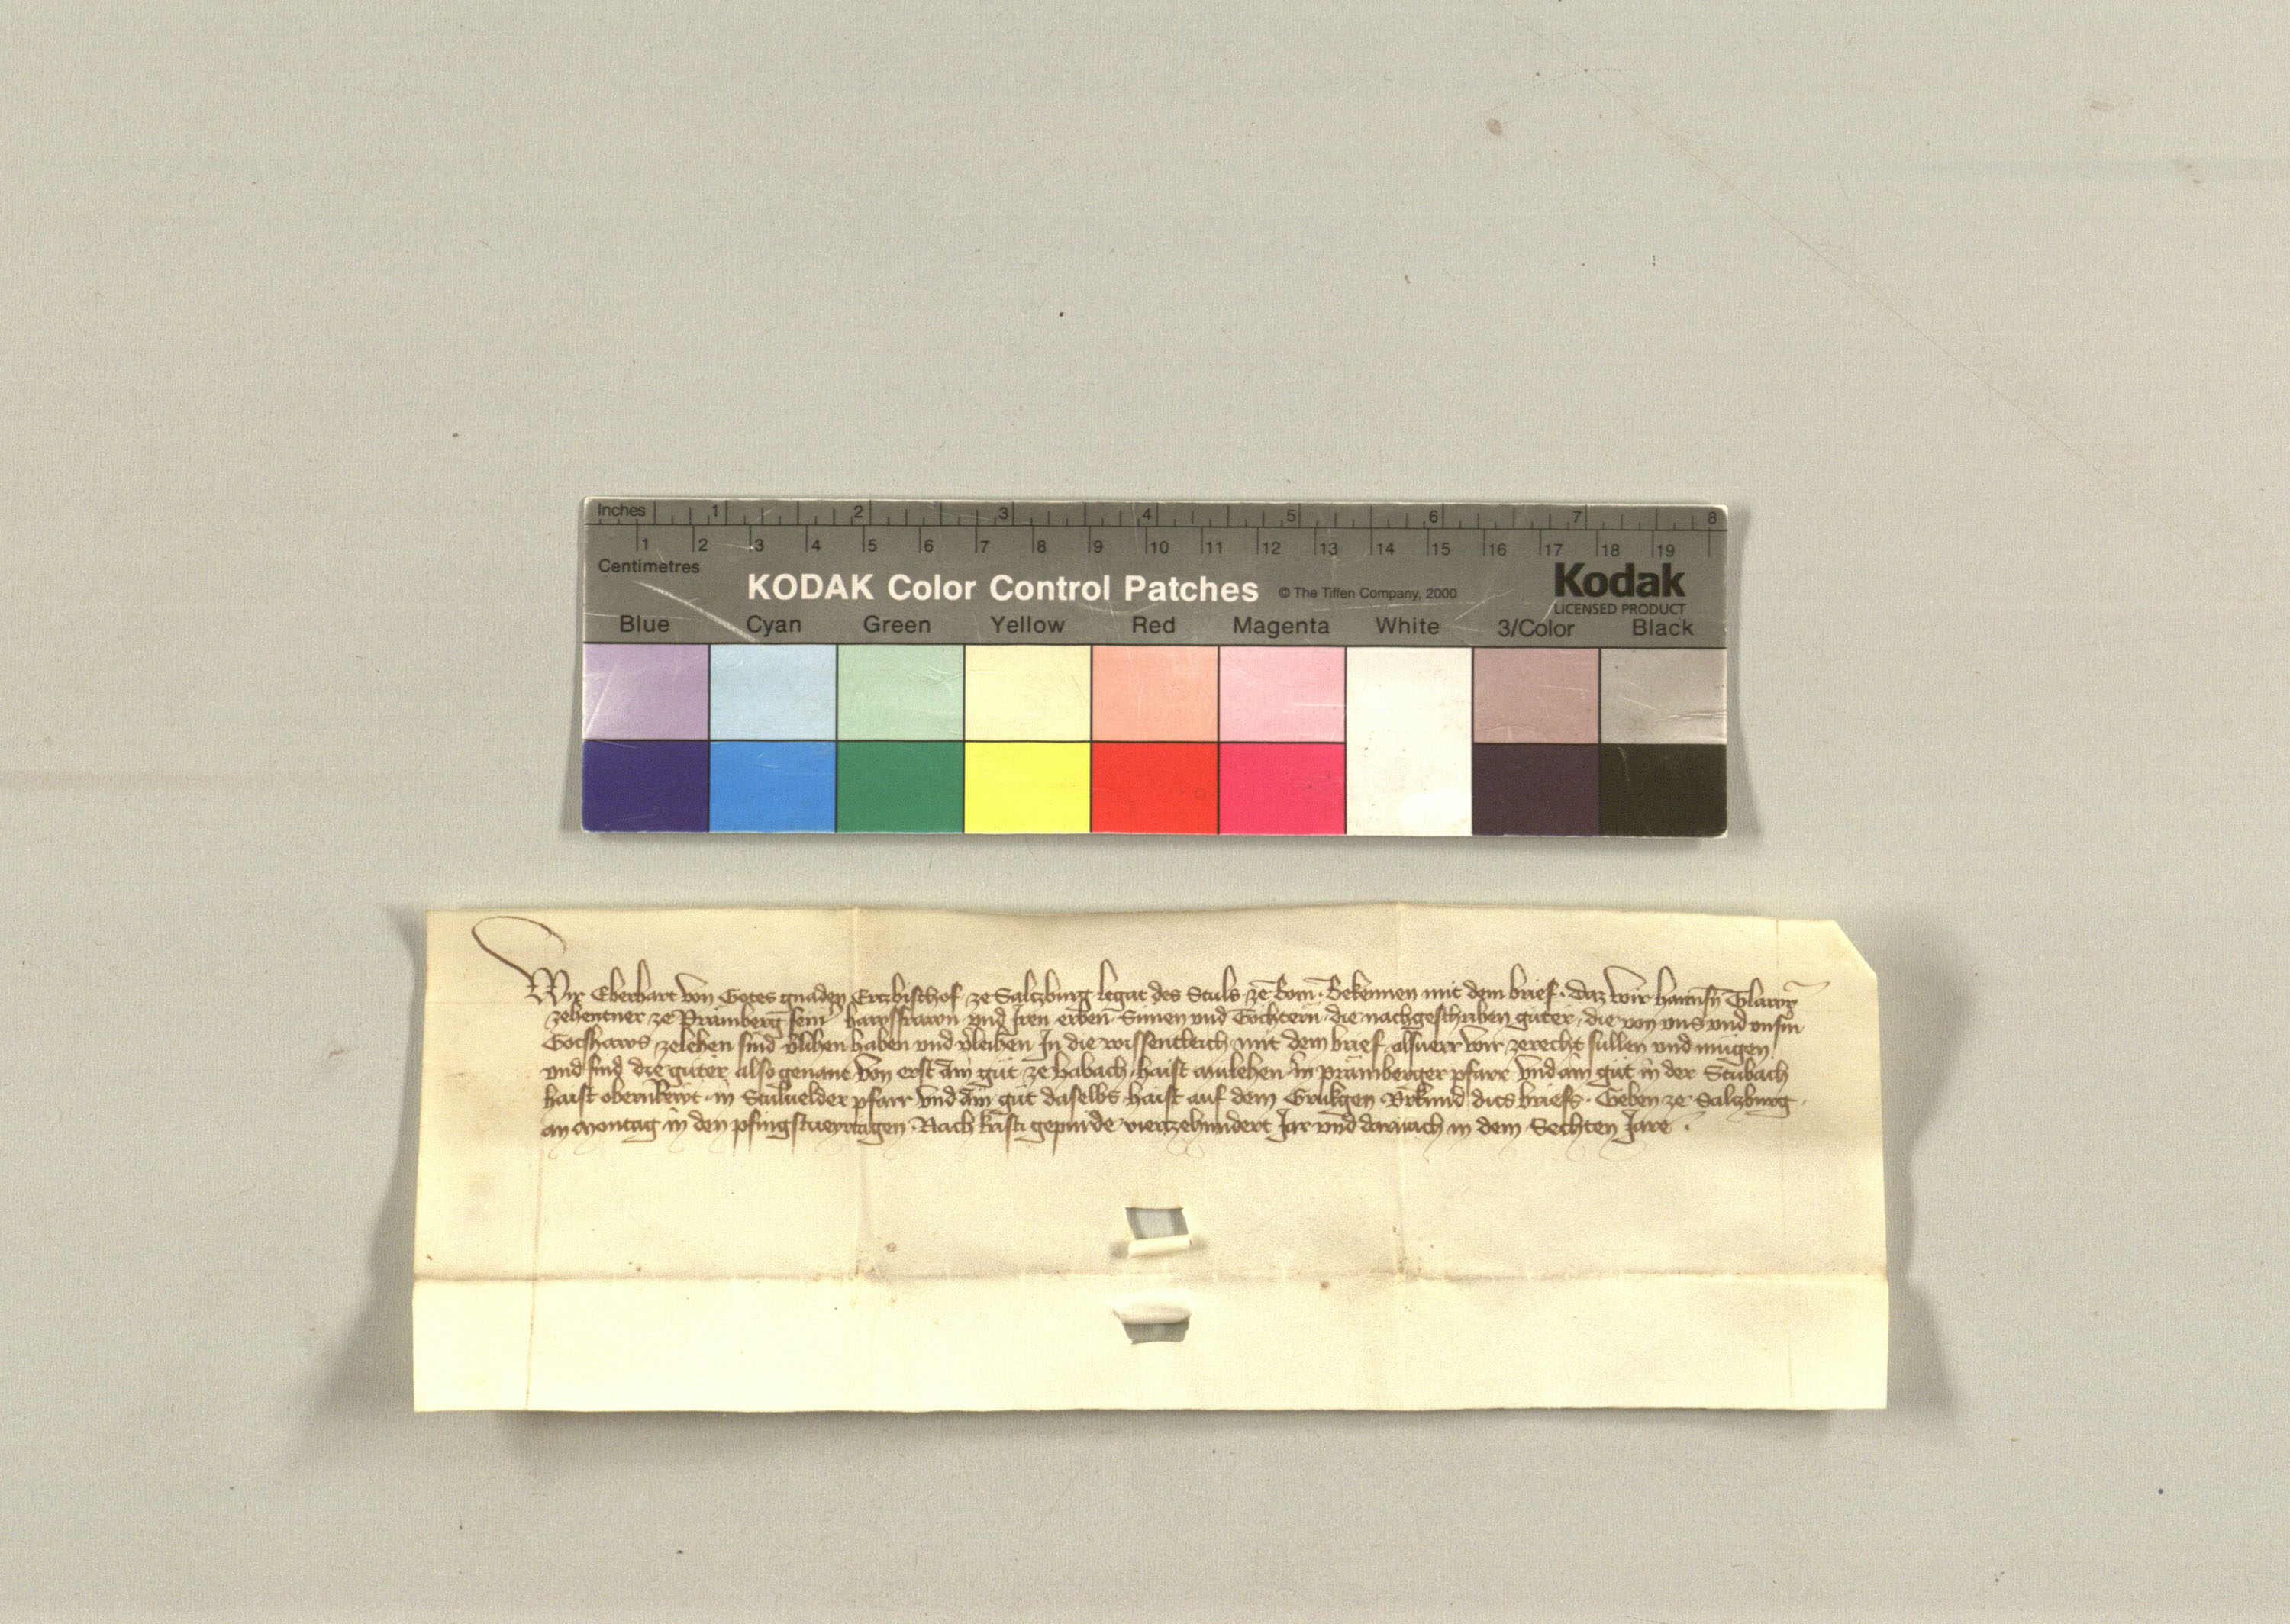 Inches 1 2 3 4 5 6 7 8
1 2 3 4 5 6 7 8 9 10 11 12 13 14 15 16 17 18 19
Centimetres
KODAK Color Control Patches © The Tiffen Company, 2000 Kodak
LICENSED PRODUCT
Blue Cyan Green Yellow Red Magenta White 3/Color Black
Wir Eberhart von Gotes gnaden Ertzbischof ze Salczburg legat des Stuls ze Rom · Bekennen mit dem brief · daz wir
zehentner ze Pramberg sein hawsfrawn vnd Iren erben · Sunen vnd Tochtern · die nachgeschriben güter, die von vns vnd vnsm
Gotshaws zelehen sind v̄lihen haben vnd v̄leihen In die wissentleich mit dem brief, alsuerr wir zerecht süllen vnd mügen
vnd sind die güter also genant von erst ain güt ze Habach, haist in pramberger pfarr vnd ain güt in der Stubach
haist in Stuluelder pfarr vnd ain güt daselbs haist auf dem Vrkund dits briefs · Geben ze Salczburg ·
an Montag in den pfingstueyrtagen · Nach kristi gepurde viertzehundert Jar vnd darnach in dem Sechten Jare ·